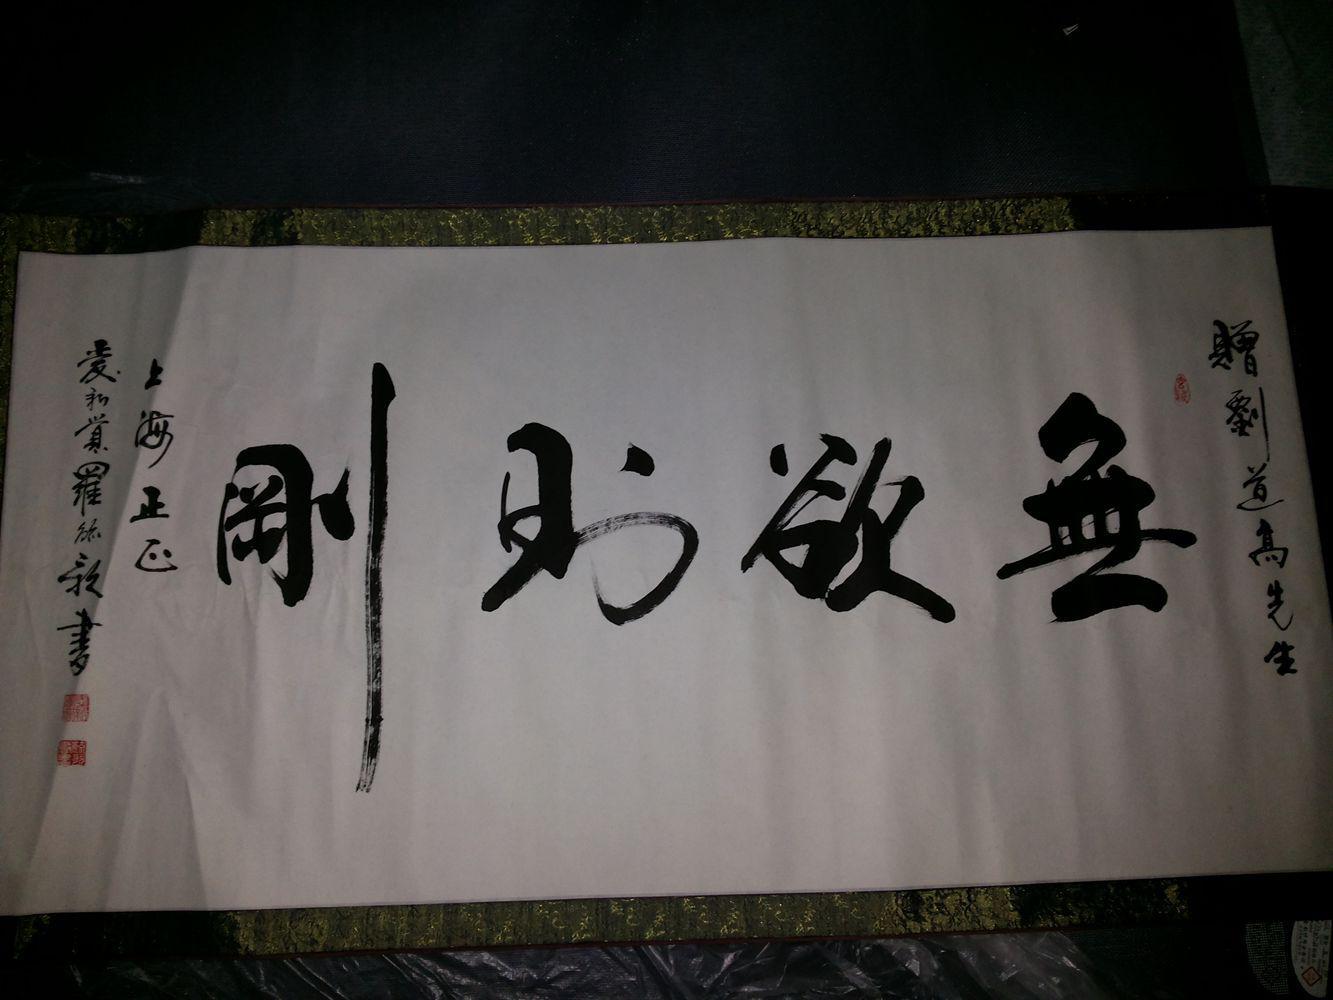 贈劉道高先生
無欲則剛
上海正正
愛新覚羅毓歆書